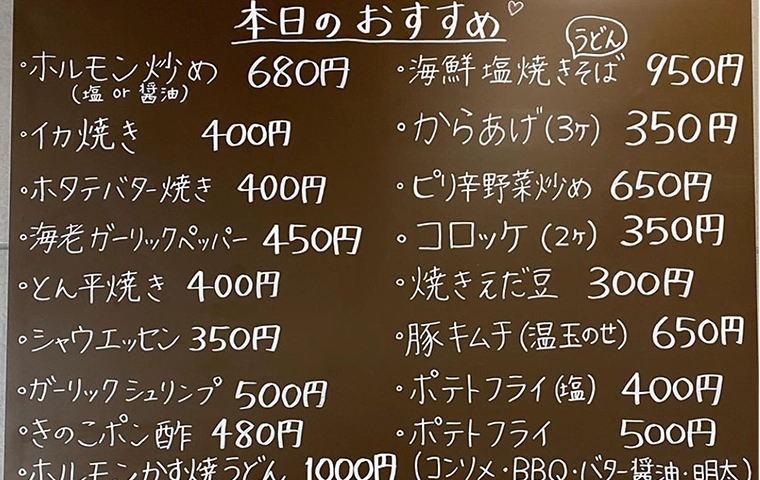 本日のおすすめ♡
・ホルモン炒め 680円
(塩 or 醤油)
・イカ焼き 400円
・ホタテバター焼き 400円
・海老ガーリックペッパー 450円
・とん平焼き 400円
・シャウエッセン 350円
・ガーリックシュリンプ 500円
・きのこポン酢 480円
・ホルモンかす焼うどん 1000円
うどん
・海鮮塩焼きそば 950円
・からあげ(3ヶ) 350円
・ピリ辛野菜炒め 650円
・コロッケ(2ヶ) 350円
・焼きえだ豆 300円
・豚キムチ(温玉のせ) 650円
・ポテトフライ(塩) 400円
・ポテトフライ 500円
(コンソメ・BBQ・バター醤油・明太)